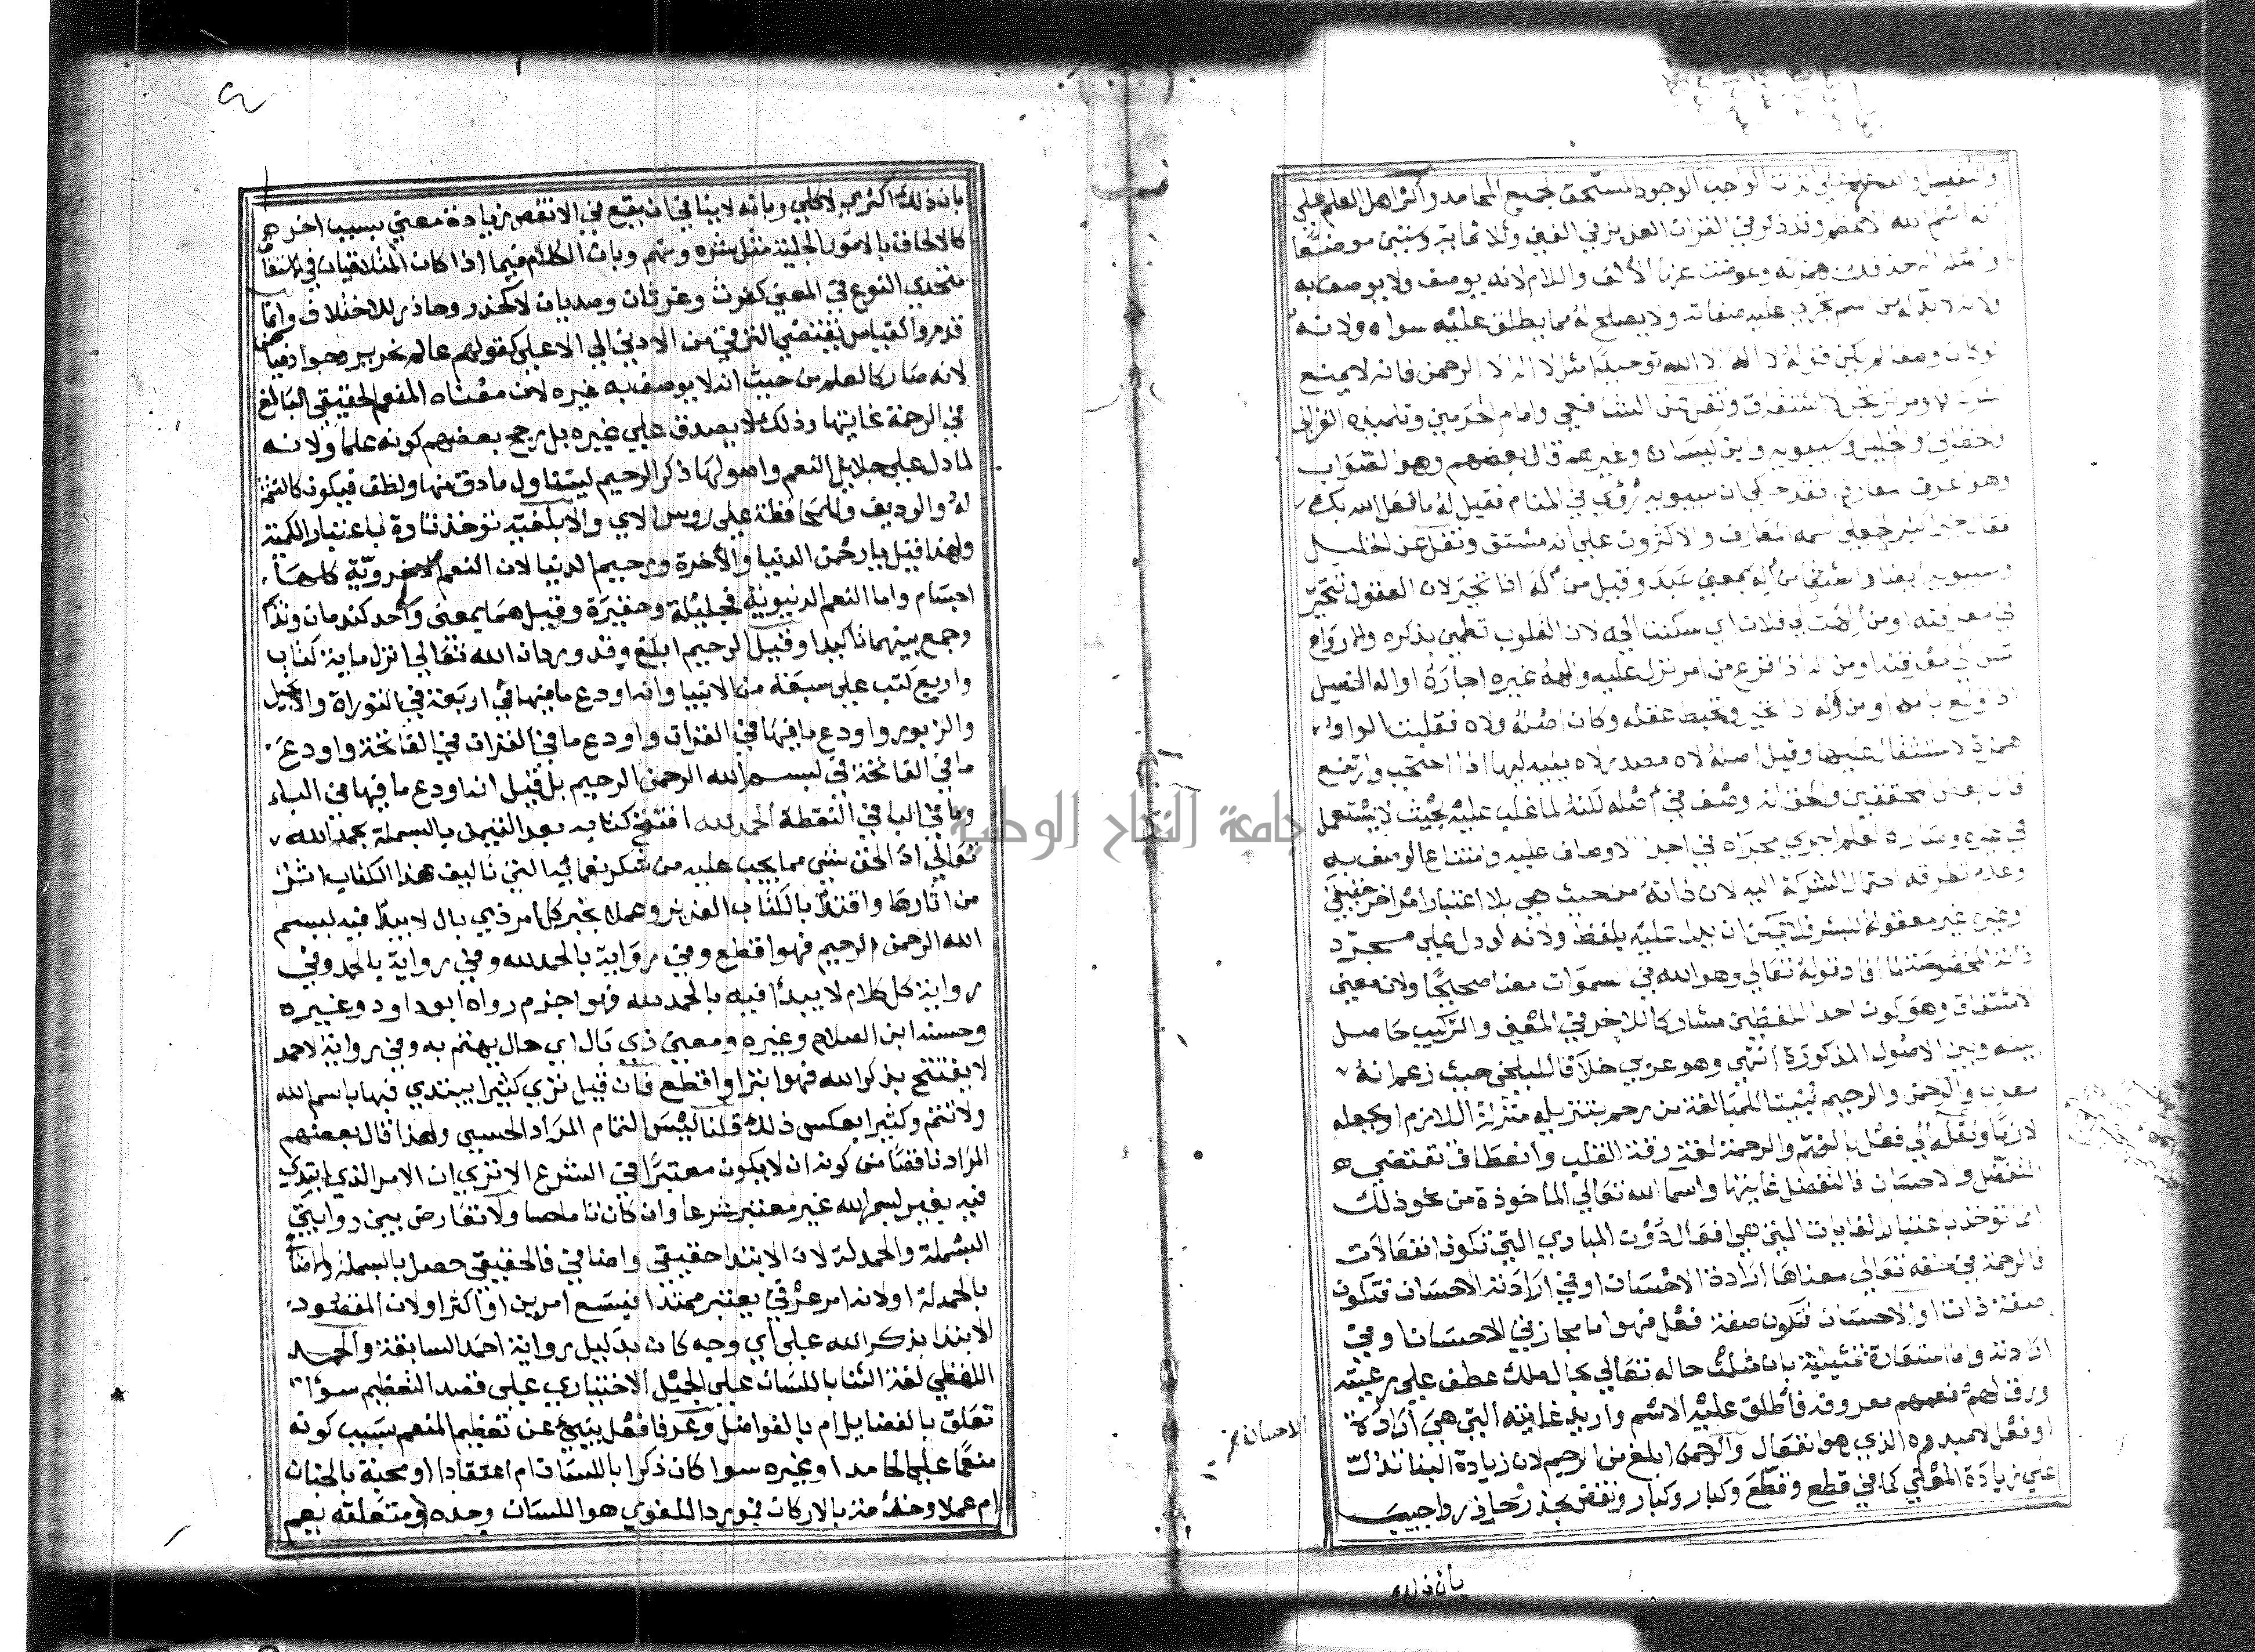 والتفضيل والله علم علي الذات الواجب الوجود المستحق لجميع المحامد واكثر اهل العلم علي
انه اسم الله الاعظم وقد ذكر في القران العزيز في الفين وثلاثماية وستين موضعا
واصله اله حذفت همزته وعوضت عنها الالف واللام لانه يوصف ولا يوصف به
ولانه لابد له من اسم تجري عليه صفاته ولا يصلح له مما يطلق عليه سواه ولانه
لو كان وصفا لم يكن قول لا اله الا الله توحيدا مثل لا اله الا الرحمن فانه لا يمنع
الشركة ومن ثم الاشتقاق ونقل عن الشافعي وامام الحرمين وتلميذه الغزالي
والخطابي والخليل وسيبويه وابن كيسان وغيرهم قال بعضهم وهو الصواب
وهو اعرف المعارف فقد حكي ان سيبويه رؤي في المنام فقيل له ما فعل الله بك
فقال خيرا كثيرا لجعلي اسمه اعرف المعارف والاكثرون علي انه مشتق ونقل عن الخليل
وسيبويه ايضا واشتقاقه من اله بمعني عبد وقيل من اله اذا تحير لان العقول تتحير
في معرفته او من الهت الي فلان اي سكنت اليه لان القلوب تطمين بذكره والارواح
تسكن الي معرفته او من اله اذا فزع من امر نزل عليه والهه غيره اجاره او اله الفصيل
اذا ولع بامه او من وله اذا تحير وتخبط عقله وكان اصله ولاه فقلبت الواو
همزة لاستثقال عليها وقيل اصله لاه مصدر لاه يليه ليها اذا احتجب وارتفع
قال بعض المحققين والحق انه وصف في اصله لكنه لما غلب عليه بحيث لا يستعمل
في غيره وصار له كالعلم اجري مجراه في اجراء الاوصاف عليه وامتناع الوصف به
وعدم تطرقه احتمال الشركة اليه لان ذاته من حيث هي بلا اعتبار امر اخر حقيقي
او غيره غير معقولة للبشر فلا يمكن ان يدل عليه بلفظ ولانه لو دل علي مجرد
ذاته المخصوصة لما افاد قوله تعالي وهو الله في السموات معنا صحيحا ولان معني
الاشتقاق وهو كون احد اللفظين مشاركا للاخر في المعني والتركيب حاصل
بينه وبين الاصول المذكورة انتهي وهو عربي خلافا للبلخي حيث زعم انه
معرب والرحمن والرحيم بنيتا للمبالغة من رحم بتنزيله منزلة اللازم او بجعله
لازما ونقله الي فعل بالضم والرحمة لغة رقة القلب وانعطاف تقتضي
التفضل والاحسان فالتفضل غايتها واسما الله تعالي الماخوذة من نحو ذلك
انما توخذ باعتبار الغايات التي هي افعال دون المبادي التي تكون انفعالات
فالرحمة في حقه تعالي معناها ارادة الاحسان او في ارادته الاحسان فتكون
صفة ذات او الاحسان فتكون صفة فعل فهو اما مجاز في الاحسان او في
ارادته واما استعارة تمثيلية بان مثلت حاله تعالي بحال ملك عطف علي رعيته
ورق لهم فعمهم معروفه فاطلق عليه الاسم واريد غايته التي هي ارادة
او فعل لا مبدوه الذي هو انفعال والرحمن ابلغ من الرحيم لان زيادة البنا تدل
علي زيادة المعني كما في قطع وقطع وكبار وكبار ونقض بحذر وحاذر واجيب
الاحسان
بان ذلك
بان ذلك اكثري لا كلي وبانه لا ينافي ان يقع في الانقص زيادة معني بسبب اخر
كالالحاق بالامور الجلية مثل شره ونهم وبان الكلام فيما اذا كان المتلاقيان في الاشتقاق
متحدي النوع في المعني كغرث وغرثان وصديان لا كحذر وحاذر للاختلاف وانما
قدم والقياس يقتضي الترقي من الادني الي الاعلي كقولهم عالم نحرير وجواد فياض
لانه صار كالعلم من حيث انه لا يوصف به غيره لان معناه المنعم الحقيقي البالغ
في الرحمة غايتها وذلك لا يصدق علي غيره بل رجح بعضهم كونه علما ولانه
لما دل علي جلايل النعم واصولها ذكر الرحيم ليتناول ما دق منها ولطف فيكون كالتتمة
له والرديف وللمحافظة علي رويس الاي والابلغية توخذ تارة باعتبار الكمية
ولهذا قيل يا رحمن الدنيا والآخرة ورحيم الدنيا لان النعم الاخروية كلها
اجسام واما النعم الدنيوية فجليلة وحقيرة وقيل هما بمعني واحد كندمان ونديم
وجمع بينهما تاكيدا وقيل الرحيم ابلغ وقد ورد ان الله تعالي انزل ماية كتاب
واربع كتب علي سبعة من الانبيا وانه اودع ما فيها في اربعة في التوراة والانجيل
والزبور واودع ما فيها في القران واودع ما في القران في الفاتحة واودع
ما في الفاتحة في بسم الله الرحمن الرحيم بل قيل انه اودع ما فيها في الباء
وما في البا في النقطة الحمد لله افتتح كتابه بعد التيمن بالبسملة بحمد الله
تعالي اداء لحق شي مما يجب عليه من شكر نعمائه التي تاليف هذا الكتاب اثر
من اثارها واقتداء بالكتاب العزيز وعملا بخبر كل امر ذي بال لا يبدا فيه ببسم
الله الرحمن الرحيم فهو اقطع وفي رواية بالحمد لله وفي رواية بالحمد وفي
رواية كل كلام لا يبدا فيه بالحمد لله فهو اجذم رواه ابو داود وغيره
وحسنه ابن الصلاح وغيره ومعني ذي بال اي حال يهتم به وفي رواية لاحمد
لا يفتتح بذكر الله فهو ابتر او اقطع فان قيل نري كثيرا يبتدي فيها باسم الله
ولا تتم وكثيرا بعكس ذلك قلنا ليس التمام المراد الحسي ولهذا قال بعضهم
المراد ناقصا من كونه ان لا يكون معتبرا في الشرع الا تري ان الامر الذي ابتدي
فيه بغير بسم الله غير معتبر شرعا وان كان تاما حسا ولا تعارض بين روايتي
البسملة والحمدلة لان الابتدا حقيقي واضافي فالحقيقي حصل بالبسملة والاضافي
بالحمدلة او لانه امر عرفي يعتبر ممتدا فيسع امرين او اكثر او لان المقصود
الابتدا بذكر الله علي اي وجه كان بدليل رواية احمد السابقة والحمد
اللفظي لغة الثنا باللسان علي الجميل الاختياري علي قصد التعظيم سوا
تعلق بالفضايل ام بالفواضل وعرفا فعل ينبئ عن تعظيم المنعم بسبب كونه
منعما علي الحامد او غيره سوا كان ذكرا باللسان ام اعتقادا او محبة بالجنان
ام عملا وخدمة بالاركان فمورد اللغوي هو اللسان وحده ومتعلقه يعم
جامعة النجاح الوطنية